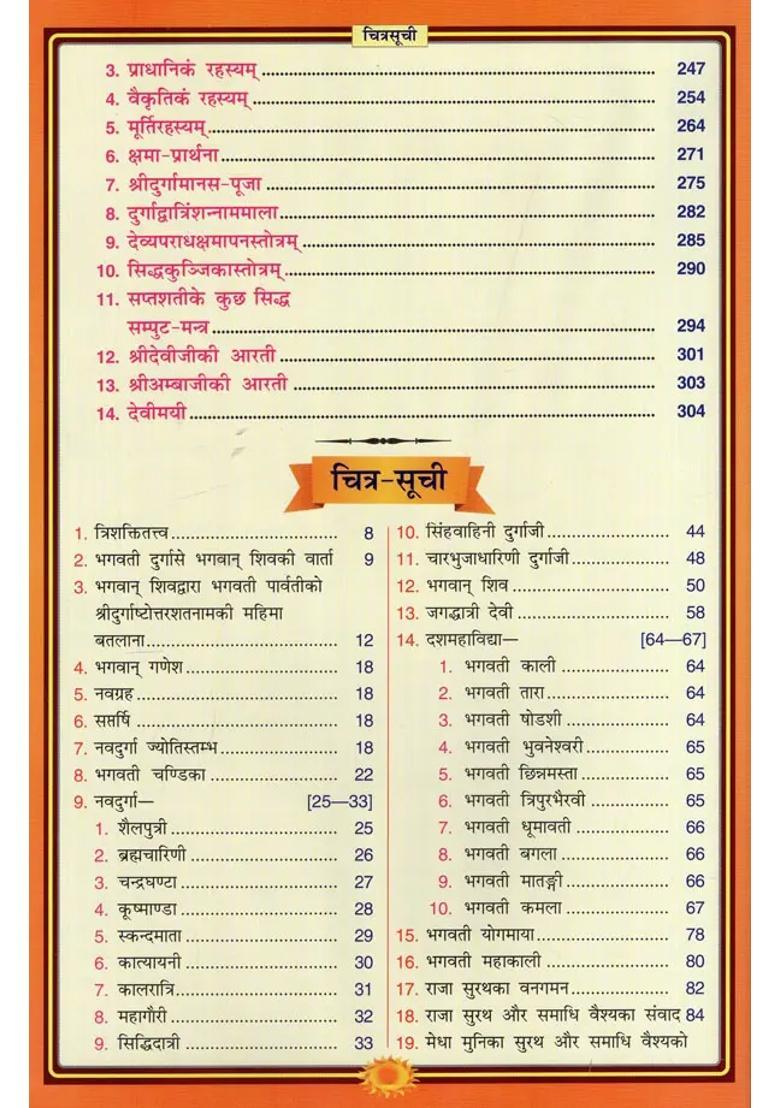 चित्रसूची
3. प्राधानिकं रहस्यम् 247
4. वैकृतिकं रहस्यम् 254
5. मूर्तिरहस्यम् 264
6. क्षमा-प्रार्थना 271
7. श्रीदुर्गामानस-पूजा 275
8. दुर्गाद्वात्रिंशन्नाममाला 282
9. देव्यपराधक्षमापनस्तोत्रम् 285
10. सिद्धकुञ्जिकास्तोत्रम् 290
11. सप्तशतीके कुछ सिद्ध
सम्पुट-मन्त्र 294
12. श्रीदेवीजीकी आरती 301
13. श्रीअम्बाजीकी आरती 303
14. देवीमयी 304
चित्र-सूची
1. त्रिशक्तितत्त्व 8
2. भगवती दुर्गासे भगवान् शिवकी वार्ता 9
3. भगवान् शिवद्वारा भगवती पार्वतीको
श्रीदुर्गाष्टोत्तरशतनामकी महिमा
बतलाना 12
4. भगवान् गणेश 18
5. नवग्रह 18
6. सप्तर्षि 18
7. नवदुर्गा ज्योतिस्तम्भ 18
8. भगवती चण्डिका 22
9. नवदुर्गा— [25—33]
1. शैलपुत्री 25
2. ब्रह्मचारिणी 26
3. चन्द्रघण्टा 27
4. कूष्माण्डा 28
5. स्कन्दमाता 29
6. कात्यायनी 30
7. कालरात्रि 31
8. महागौरी 32
9. सिद्धिदात्री 33
10. सिंहवाहिनी दुर्गाजी 44
11. चारभुजाधारिणी दुर्गाजी 48
12. भगवान् शिव 50
13. जगद्धात्री देवी 58
14. दशमहाविद्या— [64—67]
1. भगवती काली 64
2. भगवती तारा 64
3. भगवती षोडशी 64
4. भगवती भुवनेश्वरी 65
5. भगवती छिन्नमस्ता 65
6. भगवती त्रिपुरभैरवी 65
7. भगवती धूमावती 66
8. भगवती बगला 66
9. भगवती मातङ्गी 66
10. भगवती कमला 67
15. भगवती योगमाया 78
16. भगवती महाकाली 80
17. राजा सुरथका वनगमन 82
18. राजा सुरथ और समाधि वैश्यका संवाद 84
19. मेधा मुनिका सुरथ और समाधि वैश्यको